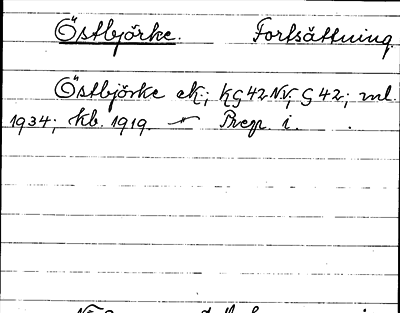 Östbjörke. Fortsättning.
Östbjörke ek; KG 42 NV, G 42; ml.
1934; kb. 1919. — Prep. i.